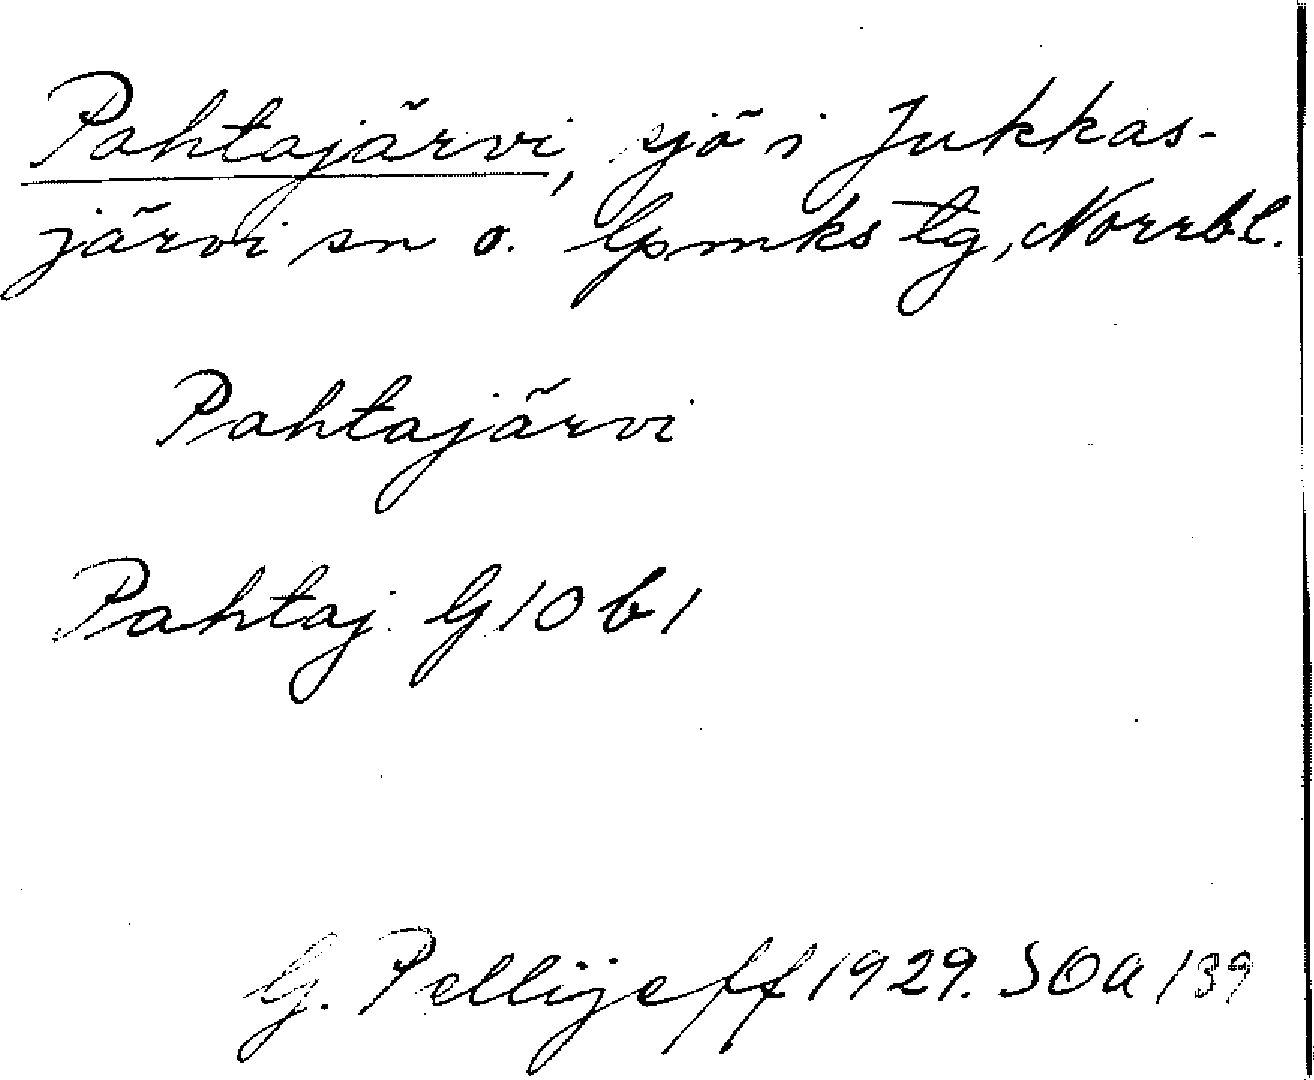 Pahtajärvi, sjö i Jukkas-
järvi sn o. lpmks tg, Norrbl.
Pahtajärvi
Pahtaj. G10b1
G. Pellijeff 1929. SOA 139